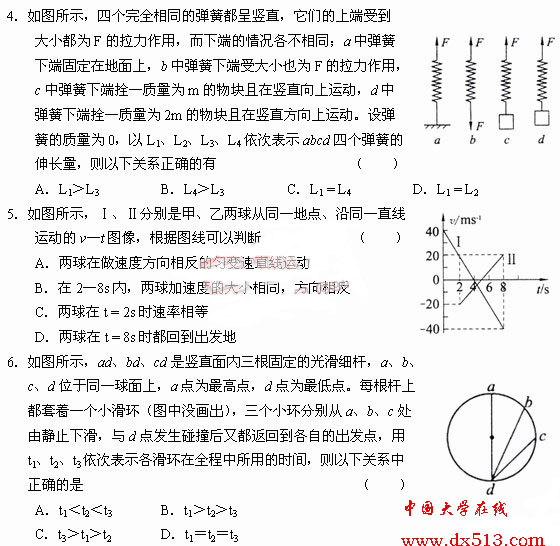 4. 如图所示，四个完全相同的弹簧都呈竖直，它们的上端受到
大小都为 F 的拉力作用，而下端的情况各不相同；a 中弹簧
下端固定在地面上，b 中弹簧下端受大小也为 F 的拉力作用，
c 中弹簧下端拴一质量为 m 的物块且在竖直向上运动，d 中
弹簧下端拴一质量为 2m 的物块且在竖直方向上运动。设弹
簧的质量为0，以 L₁、L₂、L₃、L₄ 依次表示 abcd 四个弹簧的
伸长量，则以下关系正确的有 （ ）
A．L₁＞L₃ B．L₄＞L₃ C．L₁＝L₄ D．L₁＝L₂
F F F F
F
a b c d
5. 如图所示，Ⅰ、Ⅱ分别是甲、乙两球从同一地点、沿同一直线
运动的 v—t 图像，根据图线可以判断 （ ）
A．两球在做速度方向相反的匀变速直线运动
B．在 2—8s 内，两球加速度的大小相同，方向相反
C．两球在 t＝2s 时速率相等
D．两球在 t＝8s 时都回到出发地
v/ms⁻¹
40
Ⅰ
20
Ⅱ
0 2 4 6 8 t/s
-20
-40
6. 如图所示，ad、bd、cd 是竖直面内三根固定的光滑细杆，a、b、
c、d 位于同一球面上，a 点为最高点，d 点为最低点。每根杆上
都套着一个小滑环（图中没画出），三个小环分别从 a、b、c 处
由静止下滑，与 d 点发生碰撞后又都返回到各自的出发点，用
t₁、t₂、t₃依次表示各滑环在全程中所用的时间，则以下关系中
正确的是 （ ）
A．t₁＜t₂＜t₃ B．t₁＞t₂＞t₃
C．t₃＞t₁＞t₂ D．t₁＝t₂＝t₃
a
b
c
d
中国大学在线
www.dx513.com